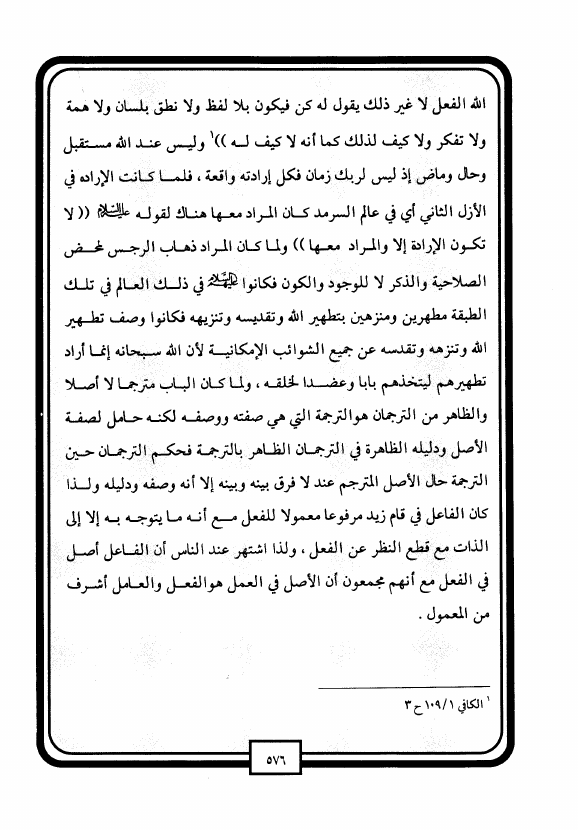 الله الفعل لا غير ذلك يقول له كن فيكون بلا لفظ ولا نطق بلسان ولا همة
ولا تفكر ولا كيف لذلك كما أنه لا كيف له ))١ وليس عند الله مستقبل
وحال وماض إذ ليس لربك زمان فكل إرادته واقعة ، فلما كانت الإراده في
الأزل الثاني أي في عالم السرمد كان المراد معها هناك لقوله عليه السلام (( لا
تكون الإرادة إلا والمراد معها )) ولما كان المراد ذهاب الرجس لمحض
الصلاحية والذكر لا للوجود والكون فكانوا عليهم السلام في ذلك العالم في تلك
الطبقة مطهرين ومنزهين بتطهير الله وتقديسه وتنزيهه فكانوا وصف تطهير
الله وتنزهه وتقدسه عن جميع الشوائب الإمكانية لأن الله سبحانه إنما أراد
تطهيرهم ليتخذهم بابا وعضدا لخلقه ، ولما كان الباب مترجما لا أصلا
والظاهر من الترجمان هوالترجمة التي هي صفته ووصفه لكنه حامل لصفة
الأصل ودليله الظاهرة في الترجمان الظاهر بالترجمة فحكم الترجمان حين
الترجمة حال الأصل المترجم عند لا فرق بينه وبينه إلا أنه وصفه ودليله ولذا
كان الفاعل في قام زيد مرفوعا معمولا للفعل مع أنه ما يتوجه به إلا إلى
الذات مع قطع النظر عن الفعل ، ولذا اشتهر عند الناس أن الفاعل أصل
في الفعل مع أنهم مجمعون أن الأصل في العمل هوالفعل والعامل أشرف
من المعمول .
١ الكافي ١٠٩/١ ح ٣
٥٧٦